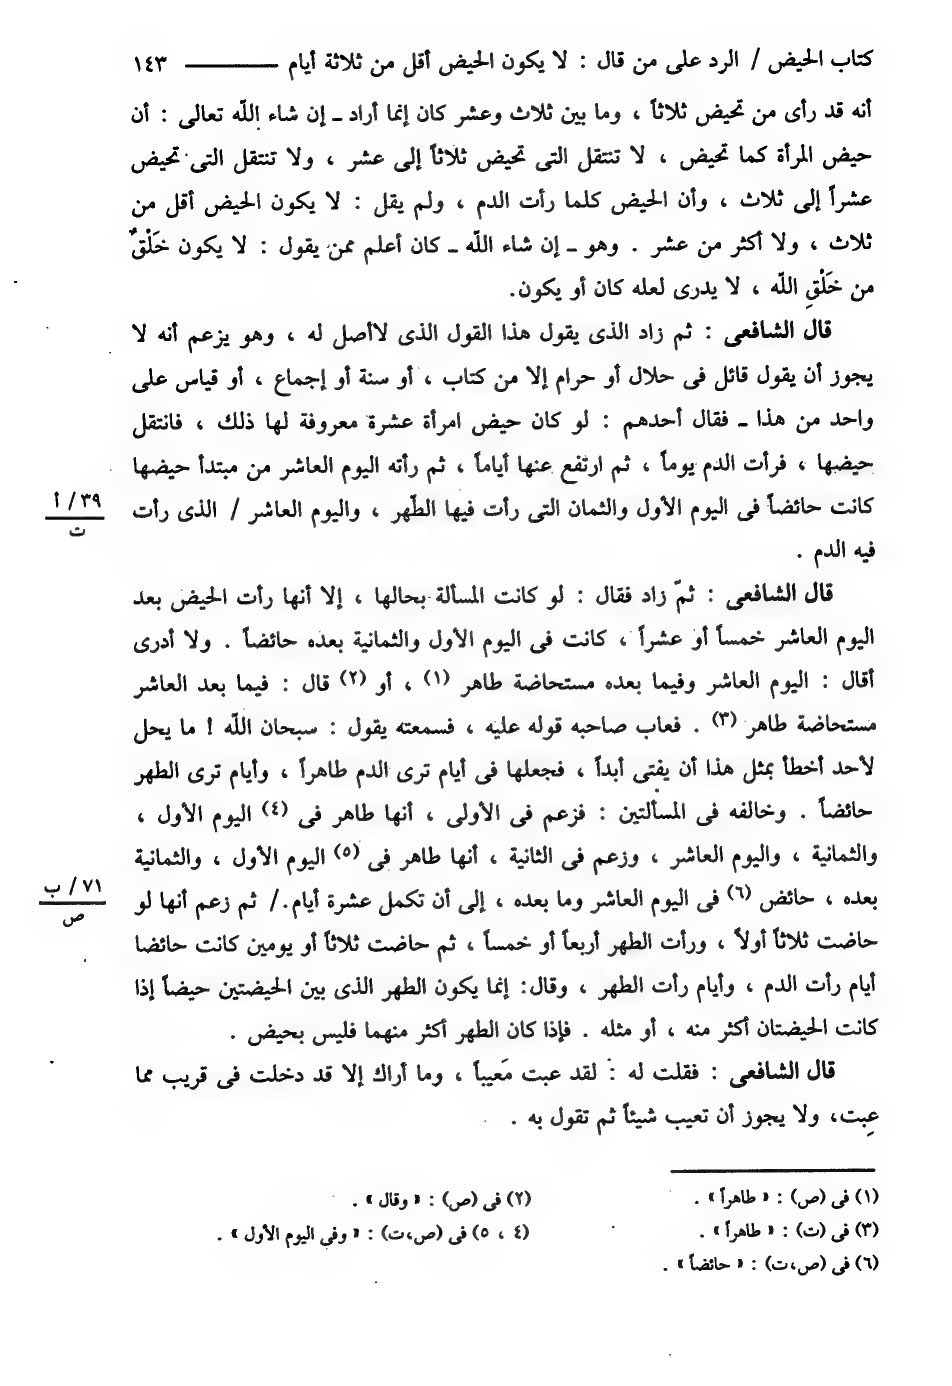 كتاب الحيض / الرد على من قال : لا يكون الحيض أقل من ثلاثة أيام ــــــــ ١٤٣
أنه قد رأى من تحيض ثلاثاً ، وما بين ثلاث وعشر كان إنما أراد ـ إن شاء الله تعالى : أن
حيض المرأة كما تحيض ، لا تنتقل التى تحيض ثلاثاً إلى عشر ، ولا تنتقل التى تحيض
عشراً إلى ثلاث ، وأن الحيض كلما رأت الدم ، ولم يقل : لا يكون الحيض أقل من
ثلاث ، ولا أكثر من عشر . وهو ـ إن شاء الله ـ كان أعلم ممن يقول : لا يكون خَلْقٌ
من خَلْقِ الله ، لا يدرى لعله كان أو يكون.
قال الشافعى : ثم زاد الذى يقول هذا القول الذى لاأصل له ، وهو يزعم أنه لا
يجوز أن يقول قائل فى حلال أو حرام إلا من كتاب ، أو سنة أو إجماع ، أو قياس على
واحد من هذا ـ فقال أحدهم : لو كان حيض امرأة عشرة معروفة لها ذلك ، فانتقل
حيضها ، فرأت الدم يوماً ، ثم ارتفع عنها أياماً ، ثم رأته اليوم العاشر من مبتدأ حيضها
كانت حائضاً فى اليوم الأول والثمان التى رأت فيها الطّهر ، واليوم العاشر / الذى رأت
٣٩ / أ
ت
فيه الدم .
قال الشافعى : ثمّ زاد فقال : لو كانت المسألة بحالها ، إلا أنها رأت الحيض بعد
اليوم العاشر خمساً أو عشراً ، كانت فى اليوم الأول والثمانية بعده حائضاً . ولا أدرى
أقال : اليوم العاشر وفيما بعده مستحاضة طاهر (١) ، أو (٢) قال : فيما بعد العاشر
مستحاضة طاهر (٣) . فعاب صاحبه قوله عليه ، فسمعته يقول : سبحان الله ! ما يحل
لأحد أخطأ بمثل هذا أن يفتى أبداً ، فجعلها فى أيام ترى الدم طاهراً ، وأيام ترى الطهر
حائضاً . وخالفه فى المسألتين : فزعم فى الأولى ، أنها طاهر فى (٤) اليوم الأول ،
والثمانية ، واليوم العاشر ، وزعم فى الثانية ، أنها طاهر فى (٥) اليوم الأول ، والثمانية
بعده ، حائض (٦) فى اليوم العاشر وما بعده ، إلى أن تكمل عشرة أيام./ ثم زعم أنها لو
٧١ / ب
ص
حاضت ثلاثاً أولاً ، ورأت الطهر أربعاً أو خمساً ، ثم حاضت ثلاثاً أو يومين كانت حائضا
أيام رأت الدم ، وأيام رأت الطهر ، وقال: إنما يكون الطهر الذى بين الحيضتين حيضاً إذا
كانت الحيضتان أكثر منه ، أو مثله . فإذا كان الطهر أكثر منهما فليس بحيض .
قال الشافعى : فقلت له : لقد عبت مَعيباً ، وما أراك إلا قد دخلت فى قريب مما
عِبت، ولا يجوز أن تعيب شيئاً ثم تقول به .
(١) فى (ص) : « طاهراً » .
(٢) فى (ص) : « وقال » .
(٣) فى (ت) : « طاهراً » .
(٤ ، ٥) فى (ص،ت) : « وفى اليوم الأول » .
(٦) فى (ص،ت) : « حائضاً » .